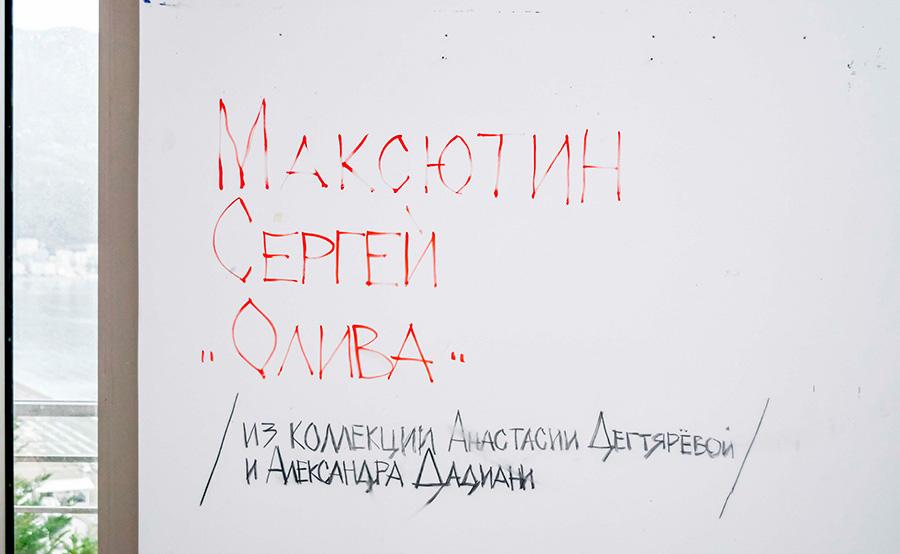 Максютин
Сергей
"Олива"
/из коллекции Анастасии Дегтярёвой/
и Александра Дадиани